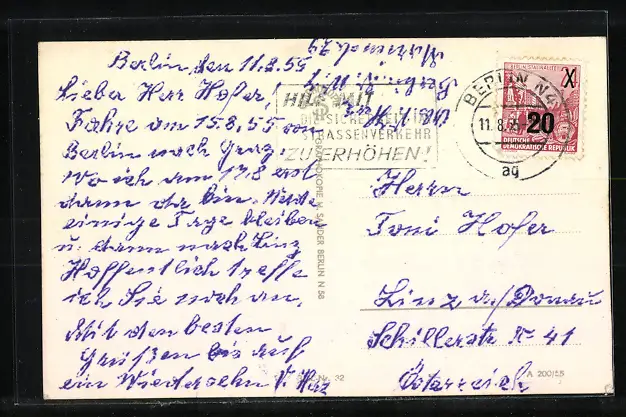 Berlin, den 11.8.55
Lieber Herr Hofer!
Fahre am 15.8.55 von
Berlin nach Graz,
wo ich am 17.8 erst
dann da bin. Werde
einige Tage bleiben
u. dann nach Linz
Hoffentlich treffe
ich Sie noch an.
Mit den besten
Grüßen bis auf
ein Wiedersehn V. Herz
HILF MIT
DIE SICHERHEIT IM
STRASSENVERKEHR
ZU ERHÖHEN!
BERLIN N4
11.8.55
20
ag
X
DEUTSCHE
DEMOKRATISCHE REPUBLIK
Herrn
Toni Hofer
Linz a./Donau
Schillerstr № 41
Österreich
FOTOKOPIE M. SANDER BERLIN N 58
Nr. 32
A 200/55